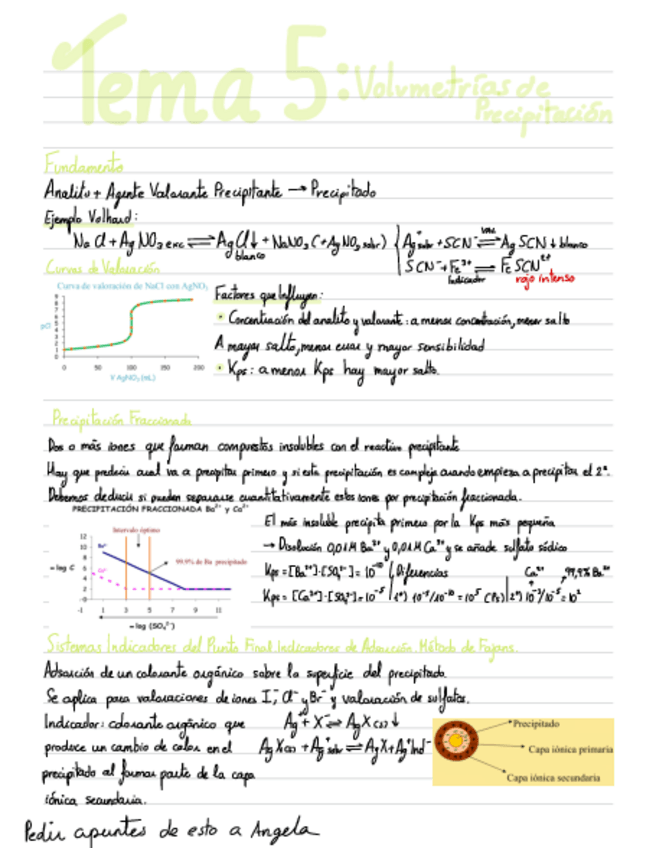 Tema 5: Volumetrías de Precipitación
Fundamento
Analito + Agente Valorante Precipitante → Precipitado
Ejemplo Volhard:
NaCl + AgNO₃ exc ⇌ AgCl↓ + NaNO₃ (+ AgNO₃ sobr)
blanco
Ag⁺sobr + SCN⁻ ⇌ AgSCN↓ blanco
SCN⁻ + Fe³⁺ ⇌ FeSCN²⁺
Indicador rojo intenso
Curvas de Valoración
Curva de valoración de NaCl con AgNO₃
9
8
7
6
5
4
3
2
1
0
pCl
0 50 100 150 200
V AgNO₃ (mL)
Factores que Influyen:
• Concentración del analito y valorante: a menor concentración, menor salto
A mayor salto, menor error y mayor sensibilidad
• Kps: a menor Kps hay mayor salto.
Precipitación Fraccionada
Dos o más iones que forman compuestos insolubles con el reactivo precipitante
Hay que predecir cual va a precipitar primero y si esta precipitación es completa cuando empieza a precipitar el 2º.
Debemos deducir si pueden separarse cuantitativamente estos iones por precipitación fraccionada.
PRECIPITACIÓN FRACCIONADA Ba²⁺ y Ca²⁺
Intervalo óptimo
12
10
8
6
4
2
0
Ba²⁺
Ca²⁺
99.9% de Ba precipitado
- log C
-1 1 3 5 7 9 11
- log (SO₄²⁻)
El más insoluble precipita primero por la Kps más pequeña
→ Disolución 0,01M Ba²⁺ y 0,01M Ca²⁺ y se añade sulfato sódico
Kps = [Ba²⁺]·[SO₄²⁻] = 10⁻¹⁰
Kps = [Ca²⁺]·[SO₄²⁻] = 10⁻⁵
Diferencias
Ca²⁺ 99,9% Ba²⁺
1º) 10⁻⁵/10⁻¹⁰ = 10⁵ 2º) 10⁻³/10⁻⁵ = 10²
Sistemas Indicadores del Punto Final. Indicadores de Adsorción. Método de Fajans.
Adsorción de un colorante orgánico sobre la superficie del precipitado.
Se aplica para valoraciones de iones I⁻, Cl⁻ y Br⁻ y valoración de sulfatos.
Indicador: colorante orgánico que
produce un cambio de color en el
precipitado al formar parte de la capa
iónica secundaria.
Ag⁺ + X⁻ ⇌ AgX(s)↓
AgX(s) + Ag⁺sobr ⇌ AgX + Ag⁺Ind⁻
Precipitado
Capa iónica primaria
Capa iónica secundaria
Pedir apuntes de esto a Angela